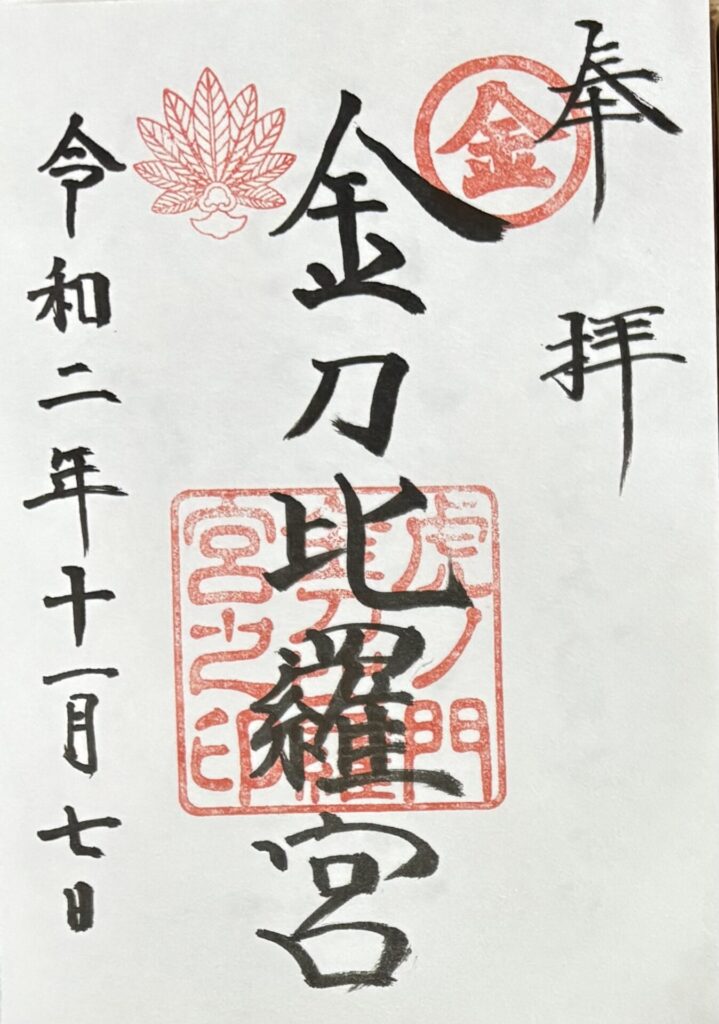 奉拝
金
金刀比羅宮
虎ノ門
金刀比羅
宮之印
令和二年十一月七日